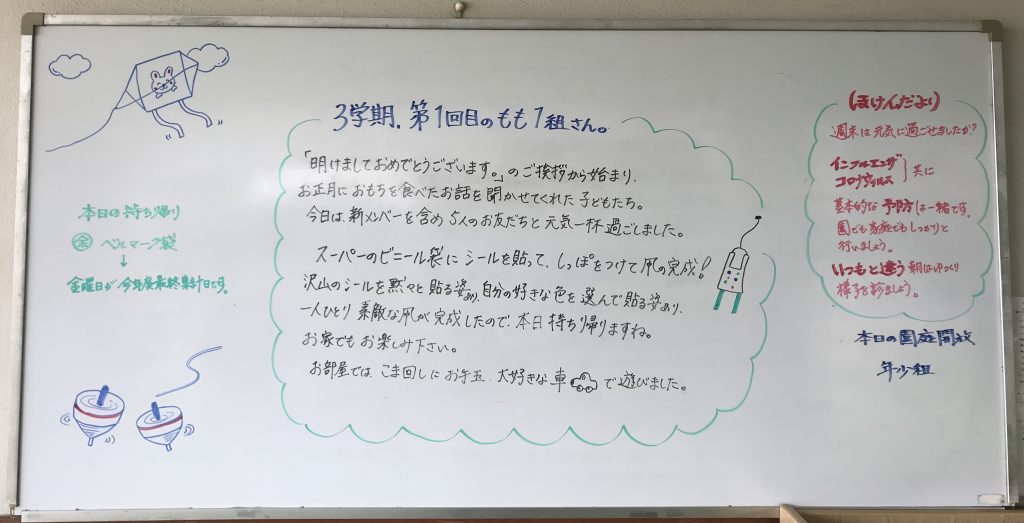 本日の持ち帰り
全 ベルマーク袋
↓
金曜日が今年度最終集計日です。
3学期、第1回目のもも1組さん。
「明けましておめでとうございます。」のご挨拶から始まり、
お正月におもちを食べたお話を聞かせてくれた子どもたち。
今日は、新メンバーを含め5人のお友だちと元気一杯過ごしました。
スーパーのビニール袋にシールを貼って、しっぽをつけて凧の完成!
沢山のシールを黙々と貼る姿あり、自分の好きな色を選んで貼る姿あり、
一人ひとり素敵な凧が完成したので、本日持ち帰りますね。
お家でもお楽しみ下さい。
お部屋では、こま回しにお手玉、大好きな車で遊びました。
(ほけんだより)
週末は元気に過ごせましたか?
インフルエンザ
コロナウィルス
共に
基本的な予防方は一緒です。
園でも家庭でもしっかりと
行いましょう。
いつもと違う朝はゆっくり
様子を診ましょう。
本日の園庭開放
年少組